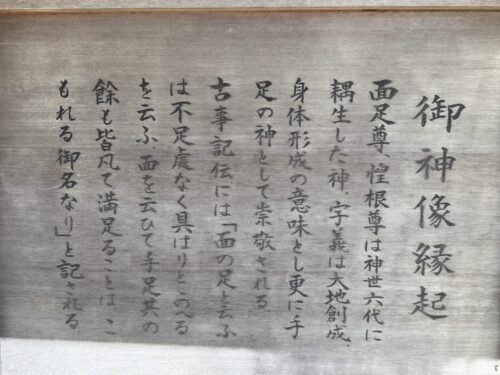 御神像縁起
面足尊、惶根尊は神世六代に
耦生した神、字義は大地創成、
身体形成の意味とし更に手
足の神として崇敬される。
古事記伝には「面の足と云ふ
は不足處なく具はりとゝのへる
を云ふ、面を云ひて手足其の
餘も皆凡て満足ることは、こ
もれる御名なり」と記される。